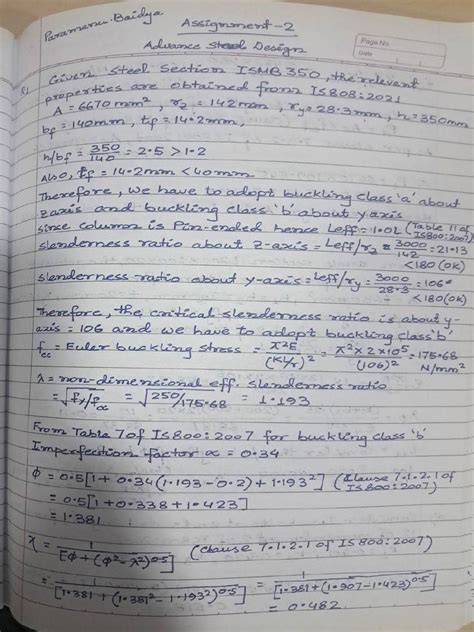 Paramanu Baidya
Assignment-2
Advance Steel Design
Page No.
Date
Q1 Given Steel Section ISMB 350, the relevent
properties are obtained from IS808:2021
A = 6670 mm², rz = 142 mm, ry = 28.3 mm, h = 350mm
bf = 140mm, tf = 14.2mm,
h/bf = 350/140 = 2.5 > 1.2
Also, tf = 14.2mm < 40mm
Therefore, we have to adopt buckling class 'a' about
z axis and buckling class 'b' about y axis
Since column is Pin-ended hence Leff = 1.0L (Table 11 of IS800:2007)
Slenderness ratio about z-axis = Leff/rz = 3000/142 = 21.13
<180 (OK)
Slenderness ratio about y-axis = Leff/ry = 3000/28.3 = 106
<180 (OK)
Therefore, the critical slenderness ratio is about y-
axis = 106 and we have to adopt buckling class 'b'
fcc = Euler buckling stress = π²E/(KL/r)² = π² × 2 × 10⁵/(106)² = 175.68 N/mm²
λ = non-dimensional eff. slenderness ratio
= √fy/fcc = √250/175.68 = 1.193
From Table 7 of IS800:2007 for buckling class 'b'
Imperfection factor α = 0.34
ϕ = 0.5[1 + 0.34(1.193 - 0.2) + 1.193²] (Clause 7.1.2.1 of IS800:2007)
= 0.5[1 + 0.338 + 1.423]
= 1.381
χ = 1/[ϕ + (ϕ² - λ²)^0.5] (Clause 7.1.2.1 of IS800:2007)
= 1/[1.381 + (1.381² - 1.193²)^0.5] = 1/[1.381 + (1.907 - 1.423)^0.5]
= 0.482